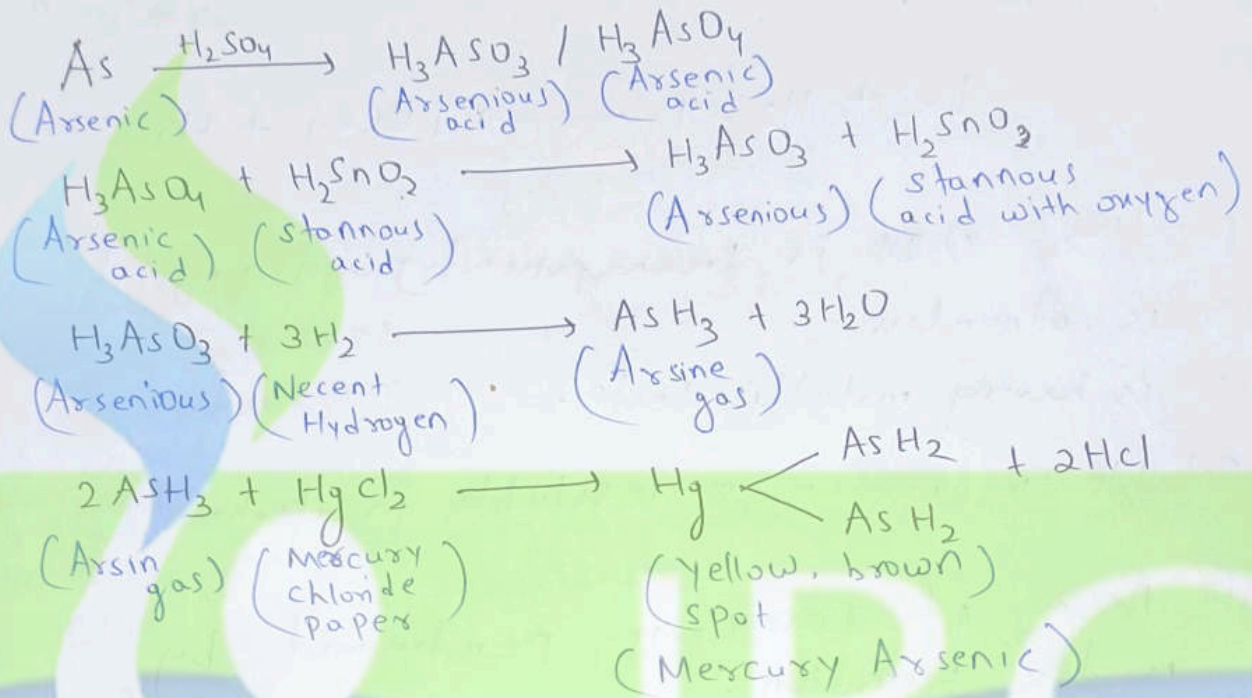 As —H2SO4→ H3ASO3 / H3AsO4
(Arsenic) (Arsenious acid) (Arsenic acid)
H3AsO4 + H2SnO2 → H3AsO3 + H2SnO3
(Arsenic acid) (stannous acid) (Arsenious) (stannous acid with oxygen)
H3AsO3 + 3H2 → AsH3 + 3H2O
(Arsenious) (Necent Hydrogen) (Arsine gas)
2ASH3 + HgCl2 → Hg < AsH2 AsH2 + 2Hcl
(Arsin gas) (Mercury chloride paper) (yellow, brown) spot
(Mercury Arsenic)